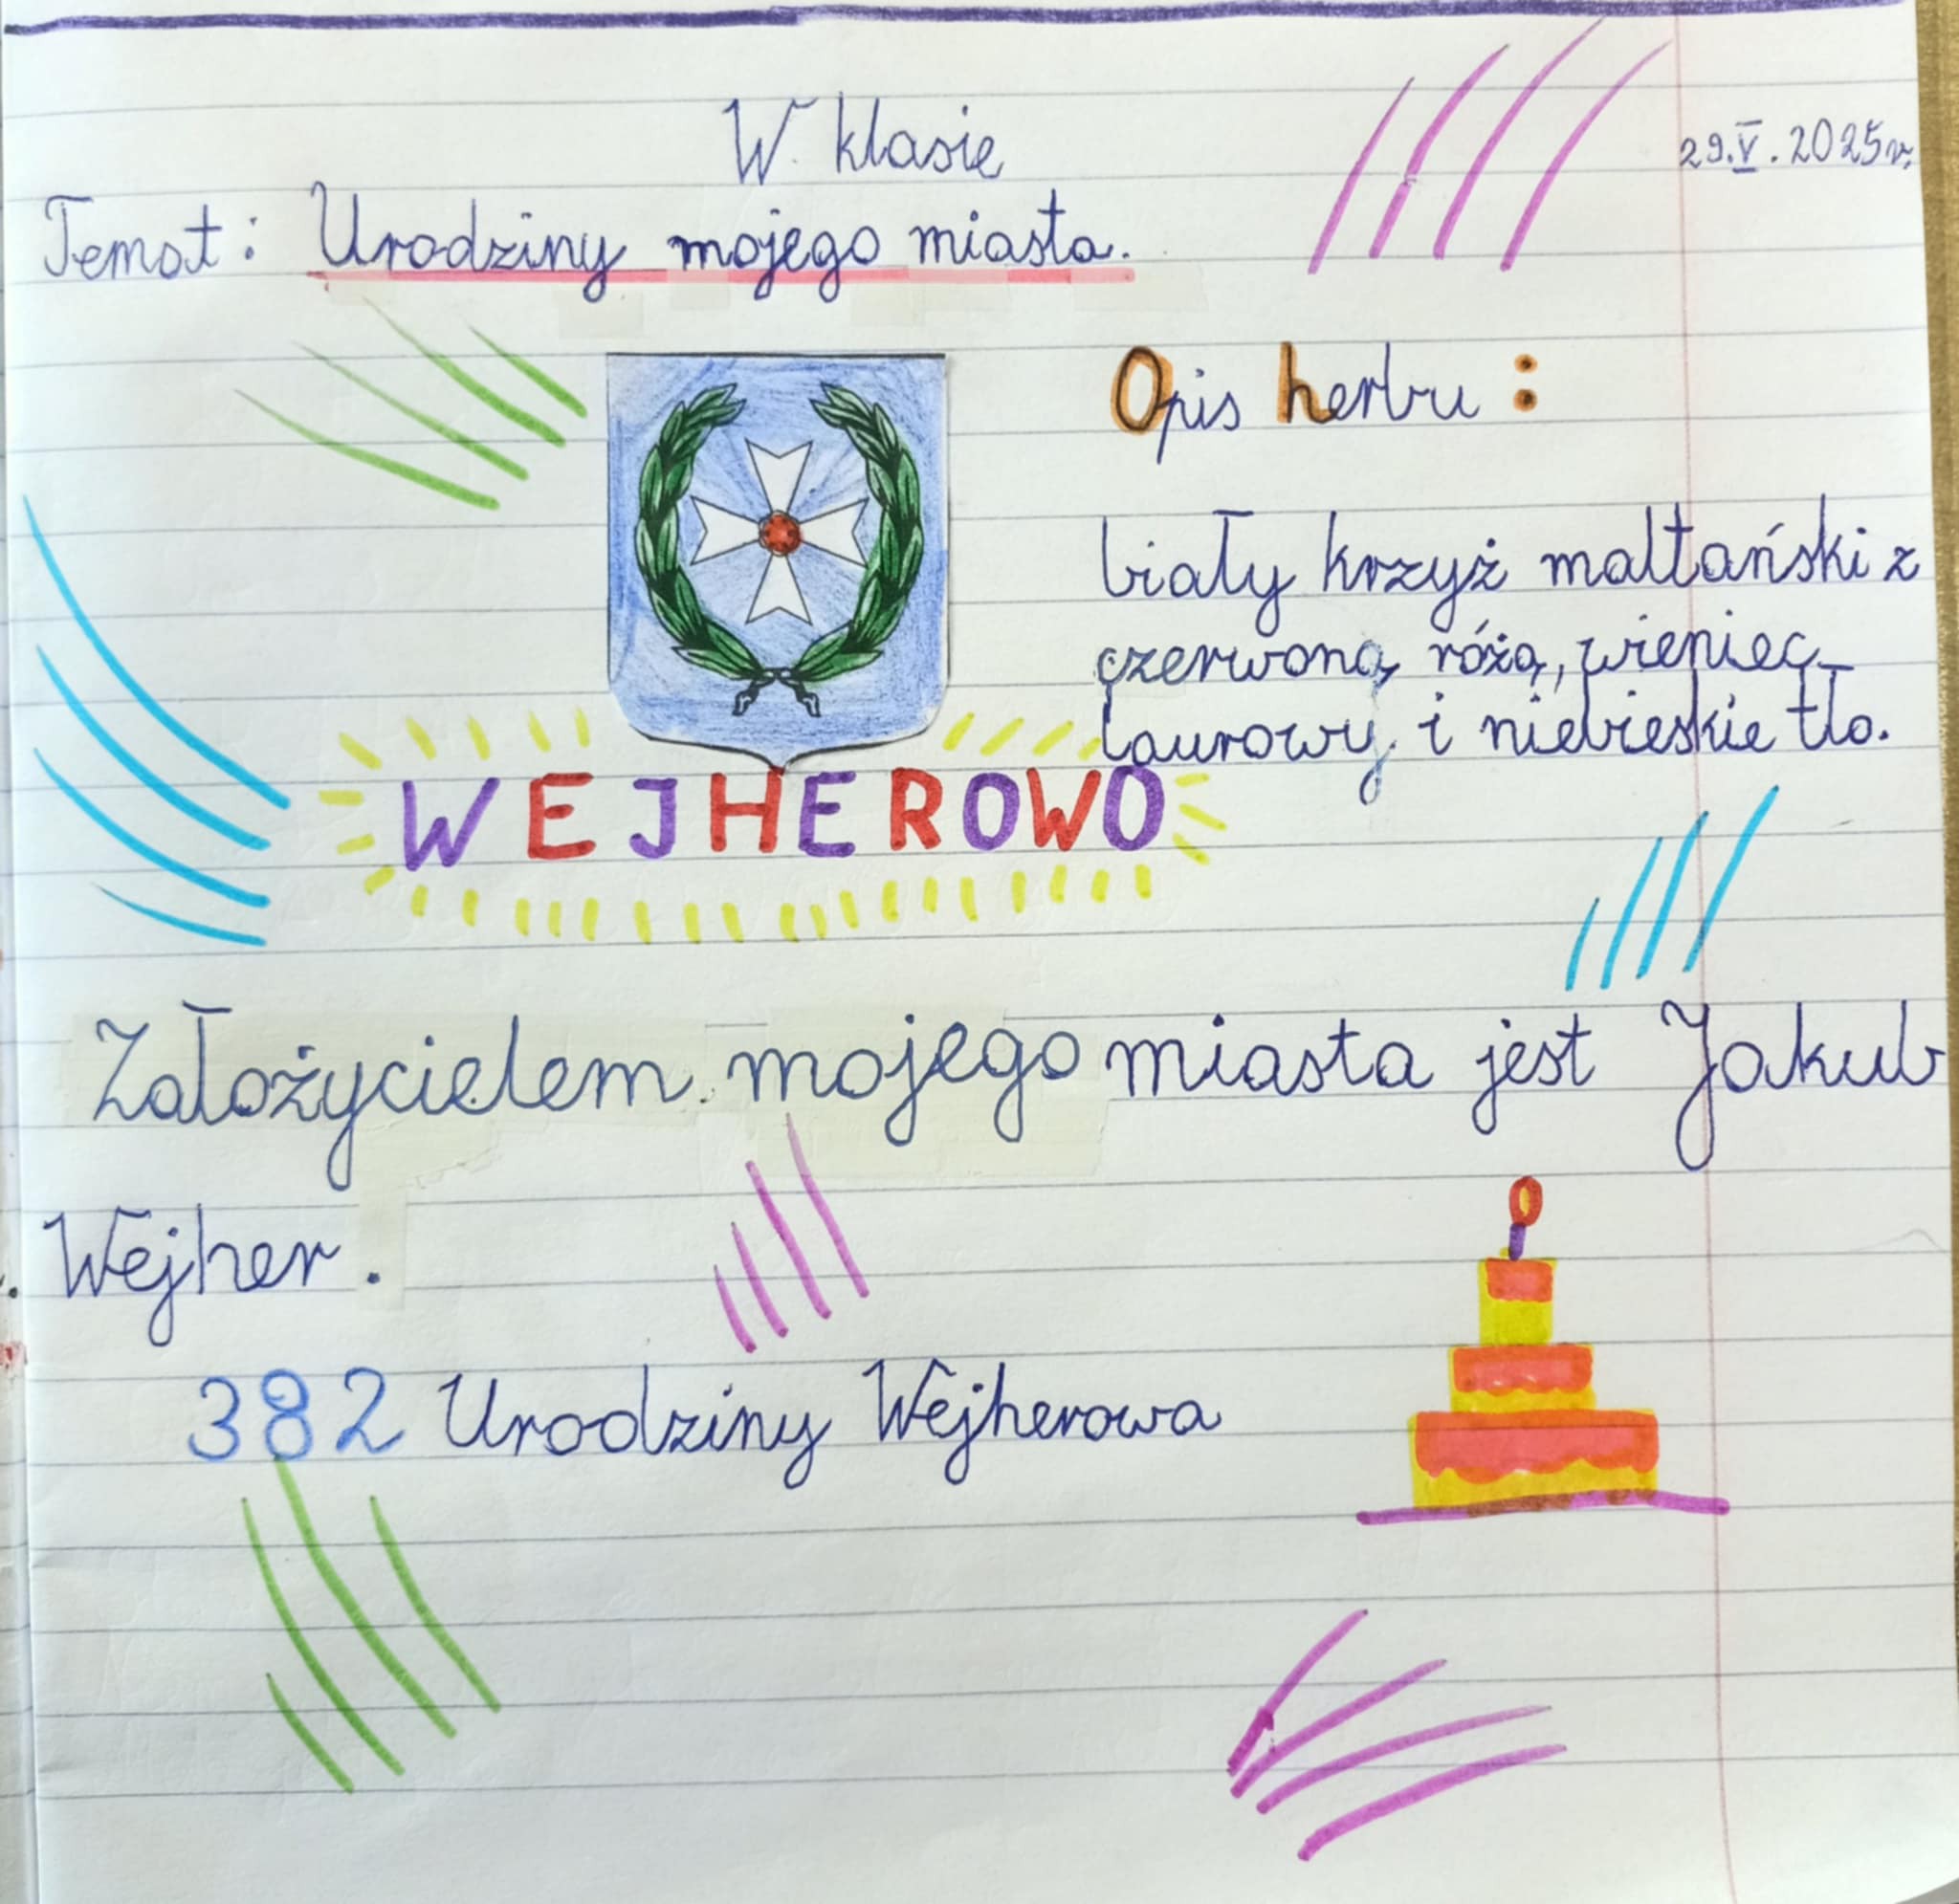 W klasie
29.V.2025r.
Temat: Urodziny mojego miasta.
Opis herbu:
biały krzyż maltański z
czerwoną różą, wieniec
laurowy i niebieskie tło.
WEJHEROWO
Założycielem mojego miasta jest Jakub
Wejher.
382 Urodziny Wejherowa